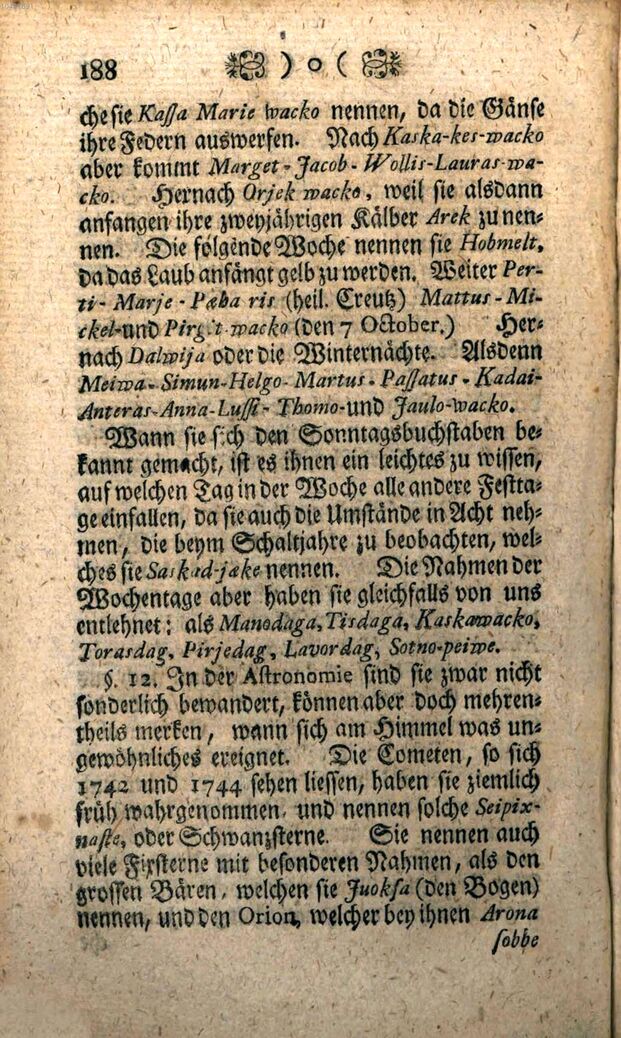 188 ) o (
che sie Kaſſa Marie wacko nennen, da die Gänse
ihre Federn auswerfen. Nach Kaska-kes-wacko
aber kommt Marget-Jacob-Wollis-Lauras-wa-
cko. Hernach Orjek wacko, weil sie alsdann
anfangen ihre zweyjährigen Kälber Arek zu nen-
nen. Die folgende Woche nennen sie Hobmelt,
da das Laub anfängt gelb zu werden. Weiter Per-
ti-Marje-Pæba ris (heil. Creutz) Mattus-Mi-
ckel-und Pirgit-wacko (den 7 October.) Her-
nach Dalwija oder die Winternächte. Alsdenn
Meiwa-Simun-Helgo-Martus-Paſſatus-Kadai-
Anteras-Anna-Luſſi-Thomo-und Jaulo-wacko.
Wann sie sich den Sonntagsbuchstaben be-
kannt gemacht, ist es ihnen ein leichtes zu wissen,
auf welchen Tag in der Woche alle andere Festta-
ge einfallen, da sie auch die Umstände in Acht neh-
men, die beym Schaltjahre zu beobachten, wel-
ches sie Saskad-jæke nennen. Die Nahmen der
Wochentage aber haben sie gleichfalls von uns
entlehnet: als Manodaga, Tisdaga, Kaskawacko,
Torasdag, Pirjedag, Lavordag, Sotno-peiwe.
§. 12. In der Astronomie sind sie zwar nicht
sonderlich bewandert, können aber doch mehren-
theils merken, wann sich am Himmel was un-
gewöhnliches ereignet. Die Cometen, so sich
1742 und 1744 sehen liessen, haben sie ziemlich
früh wahrgenommen, und nennen solche Seipix-
naste, oder Schwanzsterne. Sie nennen auch
viele Fixsterne mit besonderen Nahmen, als den
grossen Bären, welchen sie Juoksa (den Bogen)
nennen, und den Orion, welcher bey ihnen Arona
sobbe